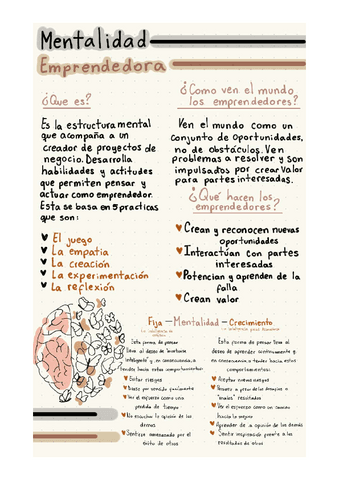 Mentalidad
Emprendedora
¿Que es?
Es la estructura mental
que acompaña a un
creador de proyectos de
negocio. Desarrolla
habilidades y actitudes
que permiten pensar y
actuar como emprendedor.
Esta se basa en 5 practicas
que son:
El juego
La empatia
La creación
La experimentación
La reflexión
¿Como ven el mundo
los emprendedores?
Ven el mundo como un
conjunto de oportunidades,
no de obstáculos. Ven
problemas a resolver y son
impulsados por crear valor
para partes interesadas.
¿Qué hacen los
emprendedores?
Crean y reconocen nuevas
oportunidades
Interactúan con partes
interesadas
Potencian y aprenden de la
falla
Crean valor
Fija – Mentalidad – Crecimiento
Esta forma de pensar
lleva al deseo de "aparentar
inteligente" y, en consecuencia, a
tender hacia estos comportamientos:
Evitar riesgos
Ver el esfuerzo como una
perdida de tiempo
No escuchar la opinión de los
demas
Sentirse amenazado por el
éxito de otros
Esta forma de pensar lleva al
deseo de aprender continuamente y,
en consecuencia, a tender hacia estos
comportamientos:
Aceptar nuevos riesgos
Ver el esfuerzo como un camino
hacia lo mejor
Aprender de la opinión de los demás
Sentir inspiración frente a los
resultados de otros